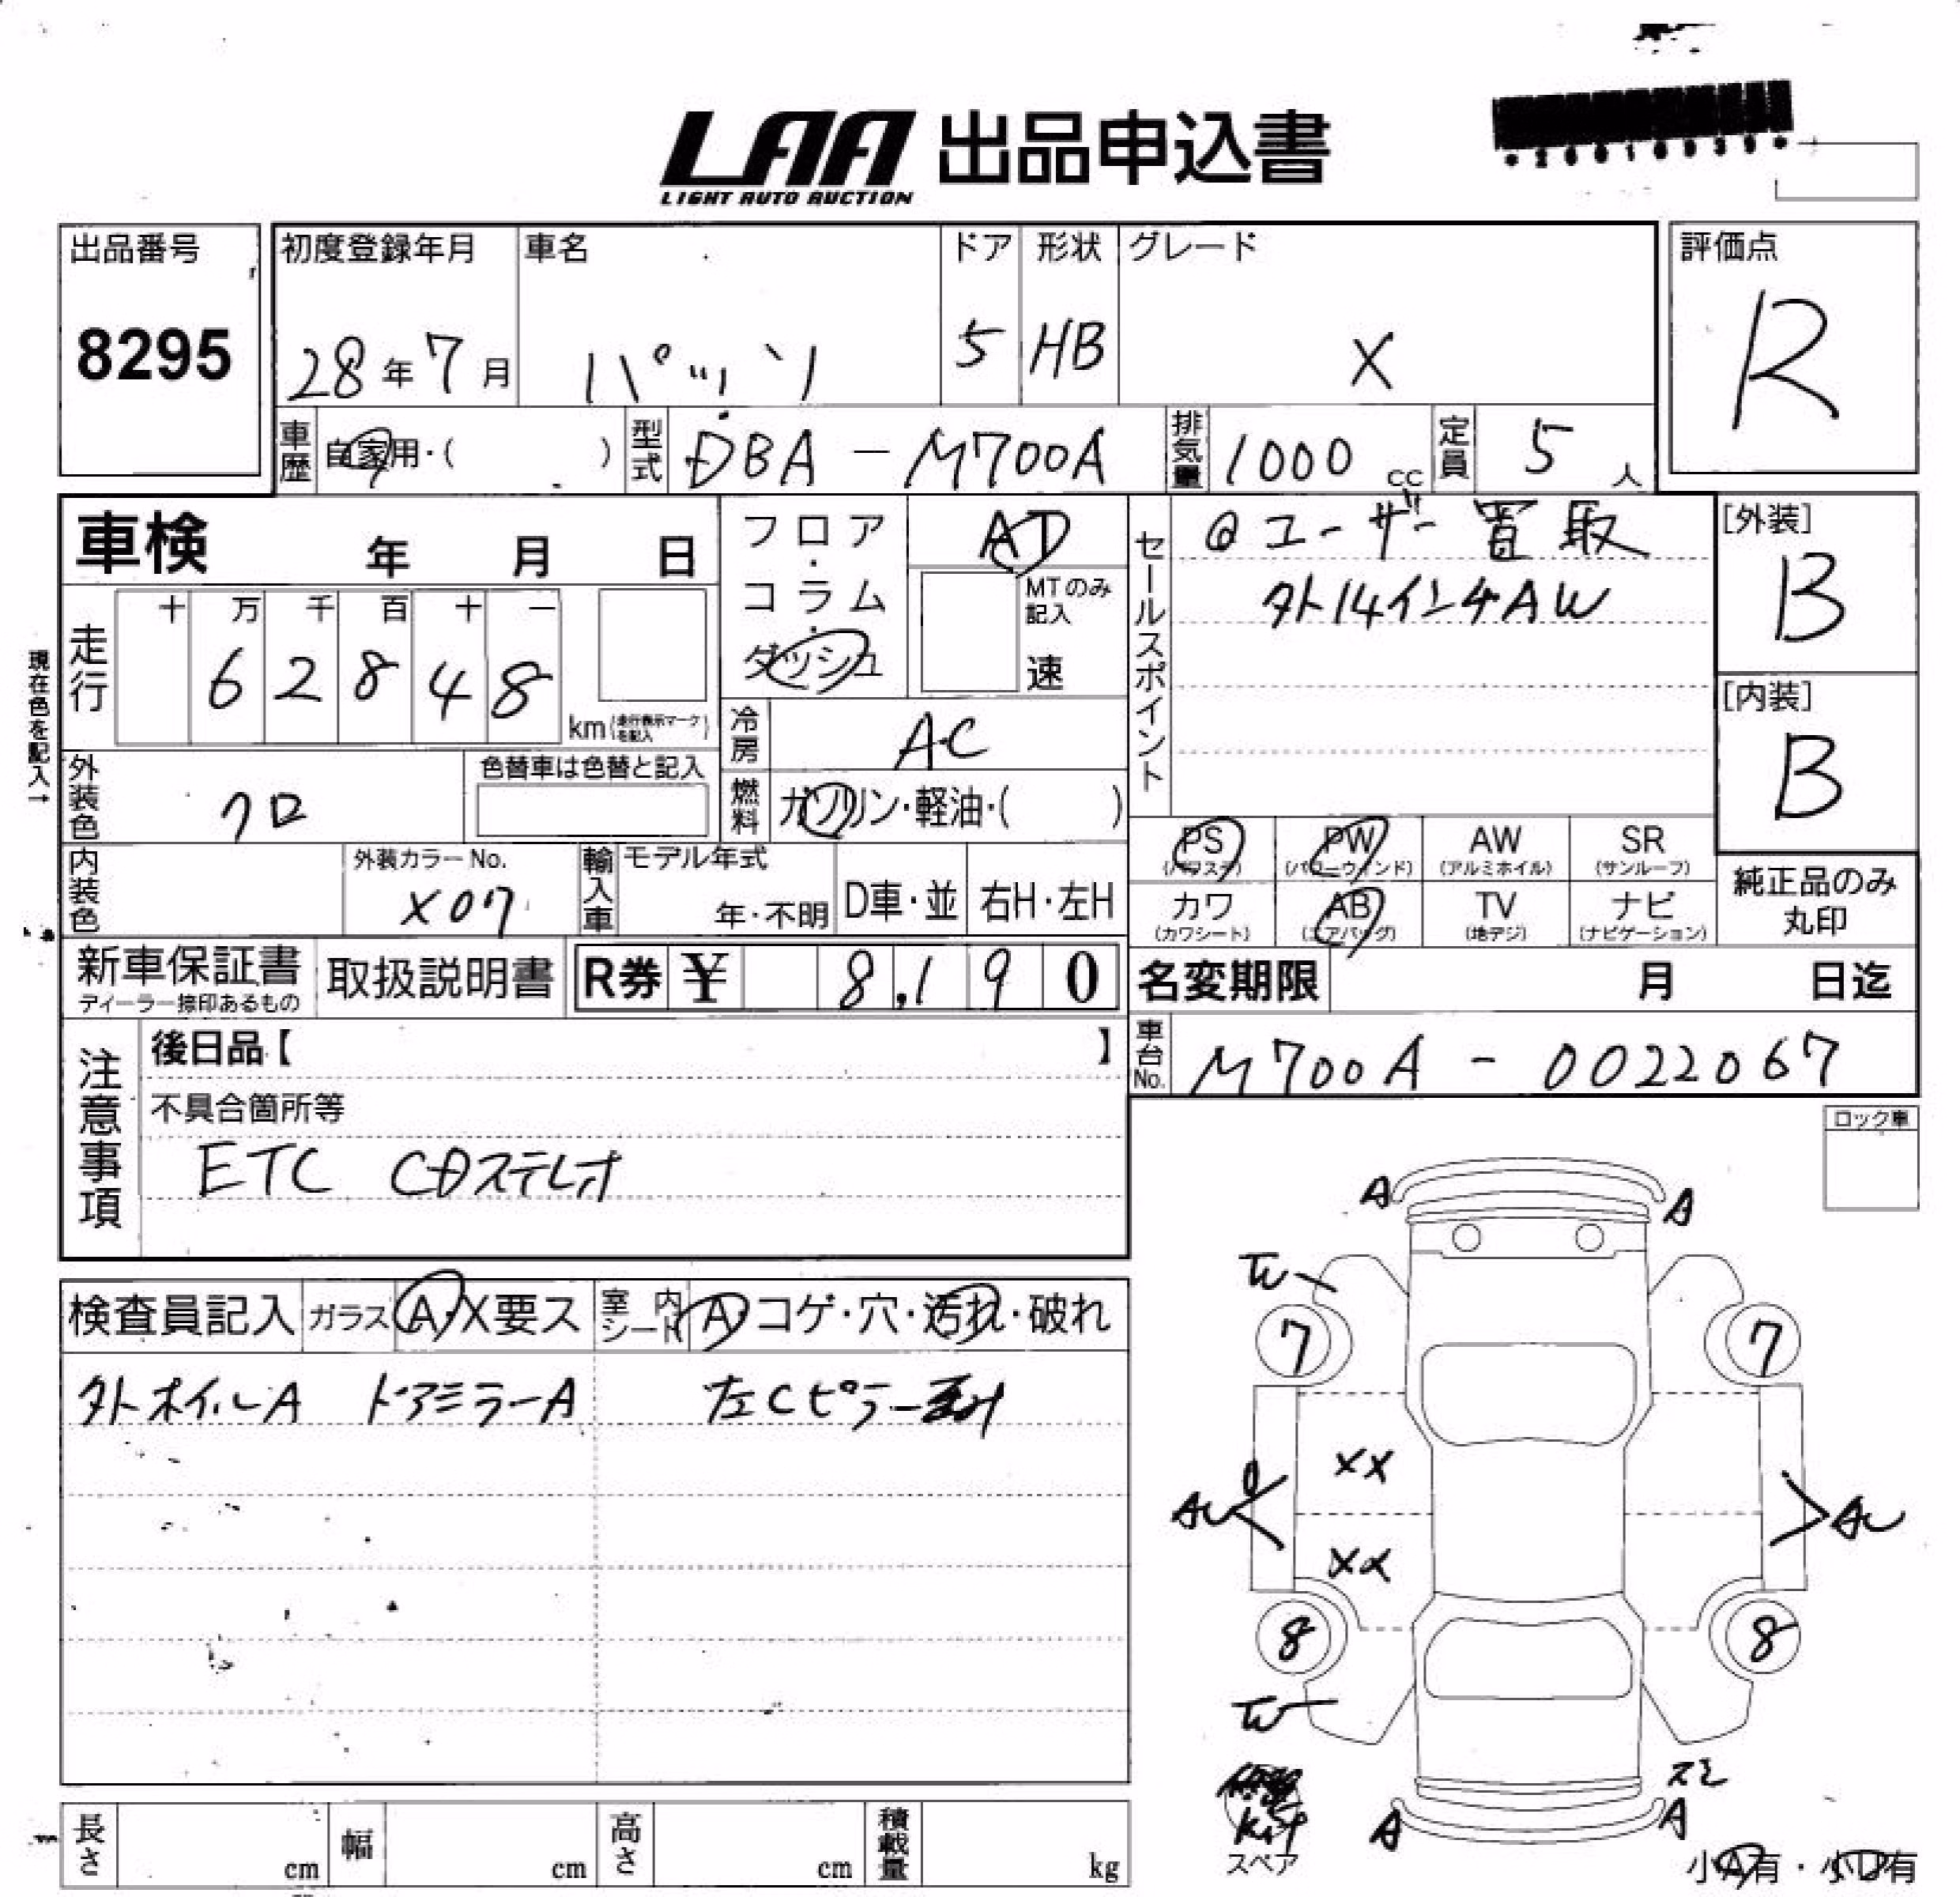 LAA 出品申込書
LIGHT AUTO AUCTION
出品番号
8295
初度登録年月
28年7月
車名
パッソ
ドア
5
形状
HB
グレード
X
評価点
R
車歴
自家用・( )
型式
DBA-M700A
排気量
1000 cc
定員
5 人
車検 年 月 日
フロア・コラム・ダッシュ
AT
MTのみ記入
速
セールスポイント
@ユーザー買取
外14インチAW
[外装]
B
[内装]
B
現在色を記入→
走行
十 万 千 百 十 一
6 2 8 4 8
km(走行表示マークを記入)
冷房
AC
外装色
クロ
色替車は色替と記入
燃料
ガソリン・軽油・( )
PS
(パワステ)
PW
(パワーウィンド)
AW
(アルミホイル)
SR
(サンルーフ)
カワ
(カワシート)
AB
(エアバッグ)
TV
(地デジ)
ナビ
(ナビゲーション)
純正品のみ
丸印
内装色
外装カラーNo.
X07
輸入車
モデル年式
年・不明
D車・並
右H・左H
新車保証書
ディーラー捺印あるもの
取扱説明書
R券 ¥ 8,190
名変期限 月 日迄
車台No.
M700A-0022067
注意事項
後日品【 】
不具合箇所等
ETC CDステレオ
ロック車
検査員記入
ガラス
A・X要ス
室内シート
A・コゲ・穴・汚れ・破れ
外ホイルA ドアミラーA 左Cピラー
A A
7 7
XX
XX
8 8
スミ
A A
スペア
小A有・小U有
長さ cm
幅 cm
高さ cm
積載量 kg